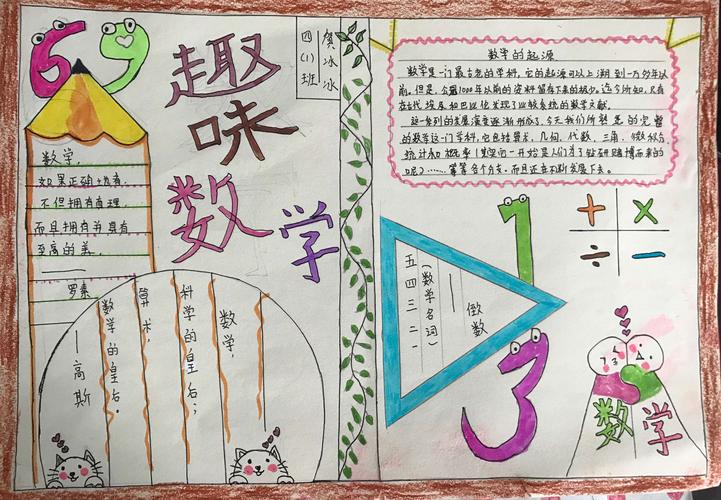 69
趣味数学
四(1)班
贺冰冰
数学,
如果正确地看,
不但拥有真理,
而且拥有并具有
至高的美.
——罗素
数学,
科学的皇后;
算术,
数学的皇后。
——高斯
数学的起源
数学是一门最古老的学科,它的起源可以上溯到一万多年以
前。但是,公元1000年以前的资料留存下来的极少。迄今所知,只有
在古代埃及和巴比伦发现了比较系统的数学文献。
的数学这一门学科,它包括算术、几何、代数、三角、微积分、
统计和概率(
等等各个分支。而且还在不断发展下去。
1
3
+ ×
÷ −
五四三二一
(数学名词)
——倒数
数学